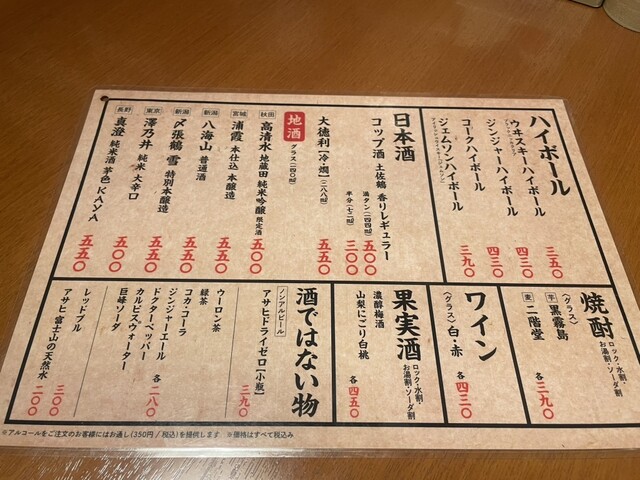 ハイボール
ウヰスキーハイボール 三五〇
ジンジャーハイボール 四三〇
コークハイボール 四三〇
ジェムソンハイボール 三九〇
日本酒
コップ酒 土佐鶴 香りレギュラー
満タン 五〇〇
半分 三〇〇
大徳利【冷・燗】 五五〇
地酒
秋田 高清水 地蔵田 純米吟醸 限定酒 五〇〇
宮城 浦霞 本仕込 本醸造 五五〇
新潟 八海山 普通酒 五五〇
新潟 〆張鶴 雪 特別本醸造 五五〇
東京 澤乃井 純米 大辛口 五〇〇
長野 真澄 純米酒 茅色 KAYA 五五〇
焼酎 ロック・水割・お湯割・ソーダ割
〈グラス〉
芋 黒霧島
麦 二階堂
各三九〇
ワイン
〈グラス〉白・赤 各四三〇
果実酒 ロック・水割・お湯割・ソーダ割
濃醇梅酒
山梨にごり白桃
各四五〇
酒ではない物
ノンアルビール
アサヒドライゼロ【小瓶】 三九〇
ウーロン茶
緑茶
コカ・コーラ
ジンジャーエール
ドクターペッパー
カルピスウォーター
巨峰ソーダ
各二八〇
レッドブル 三〇〇
アサヒ 富士山の天然水 二〇〇
※アルコールをご注文のお客様にはお通し(350円/税込)を提供します ※価格はすべて税込み